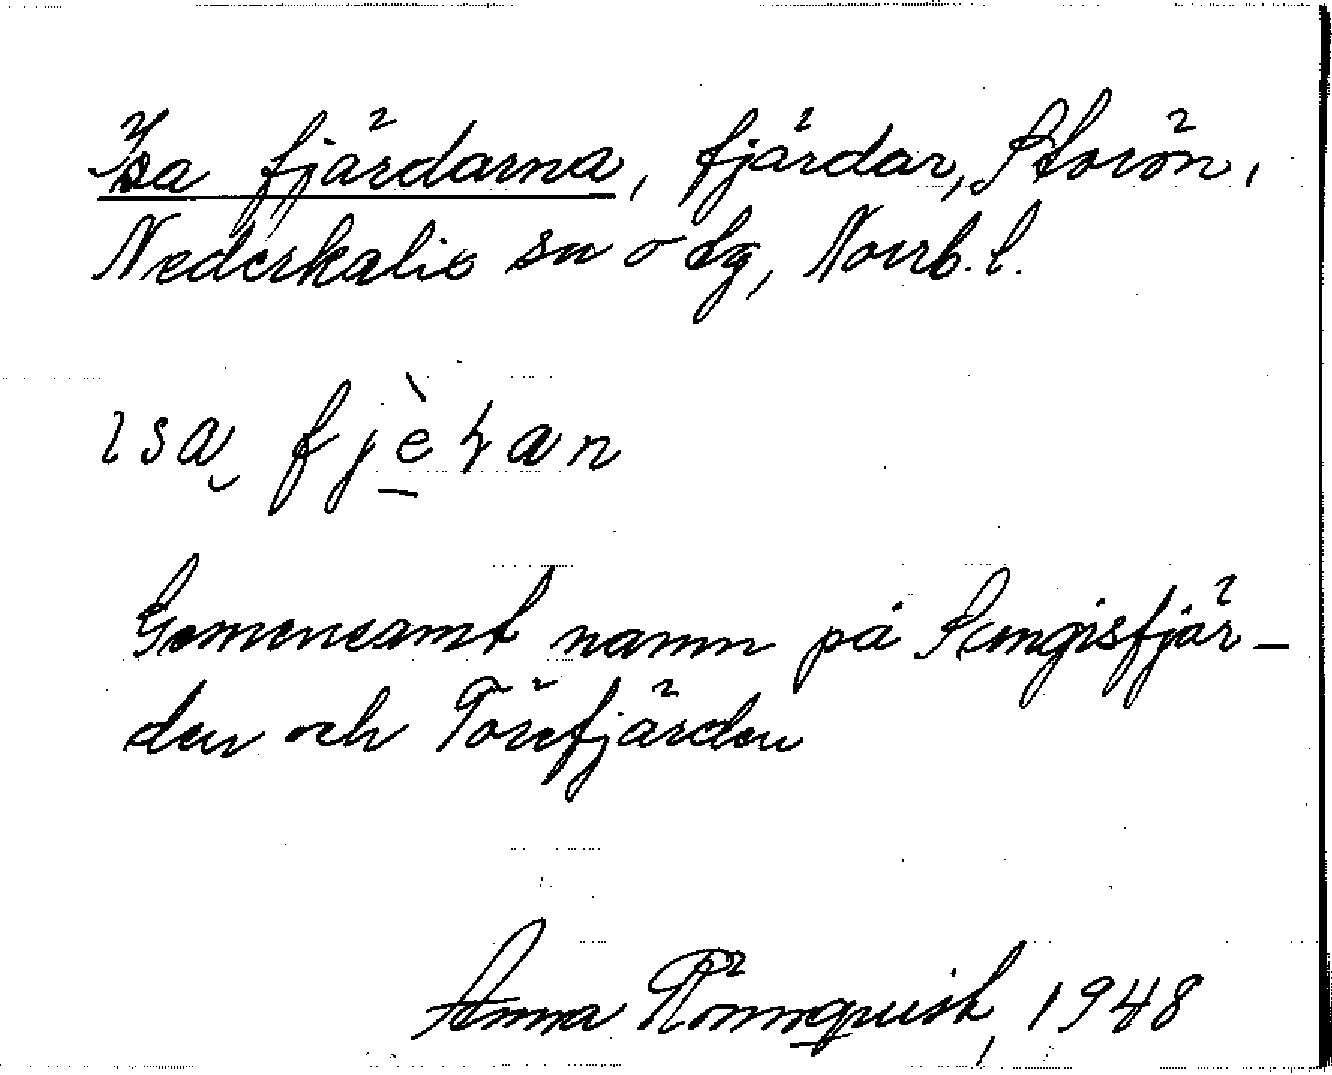 Isa fjärdarna, fjärdar, Storön,
Nederkalix sn o tg, Norrb. l.
ɩsa̮ fjè̱ɽan
Gemensamt namn på Sangisfjär-
den och Törefjärden
Anna Rönnquist, 1948